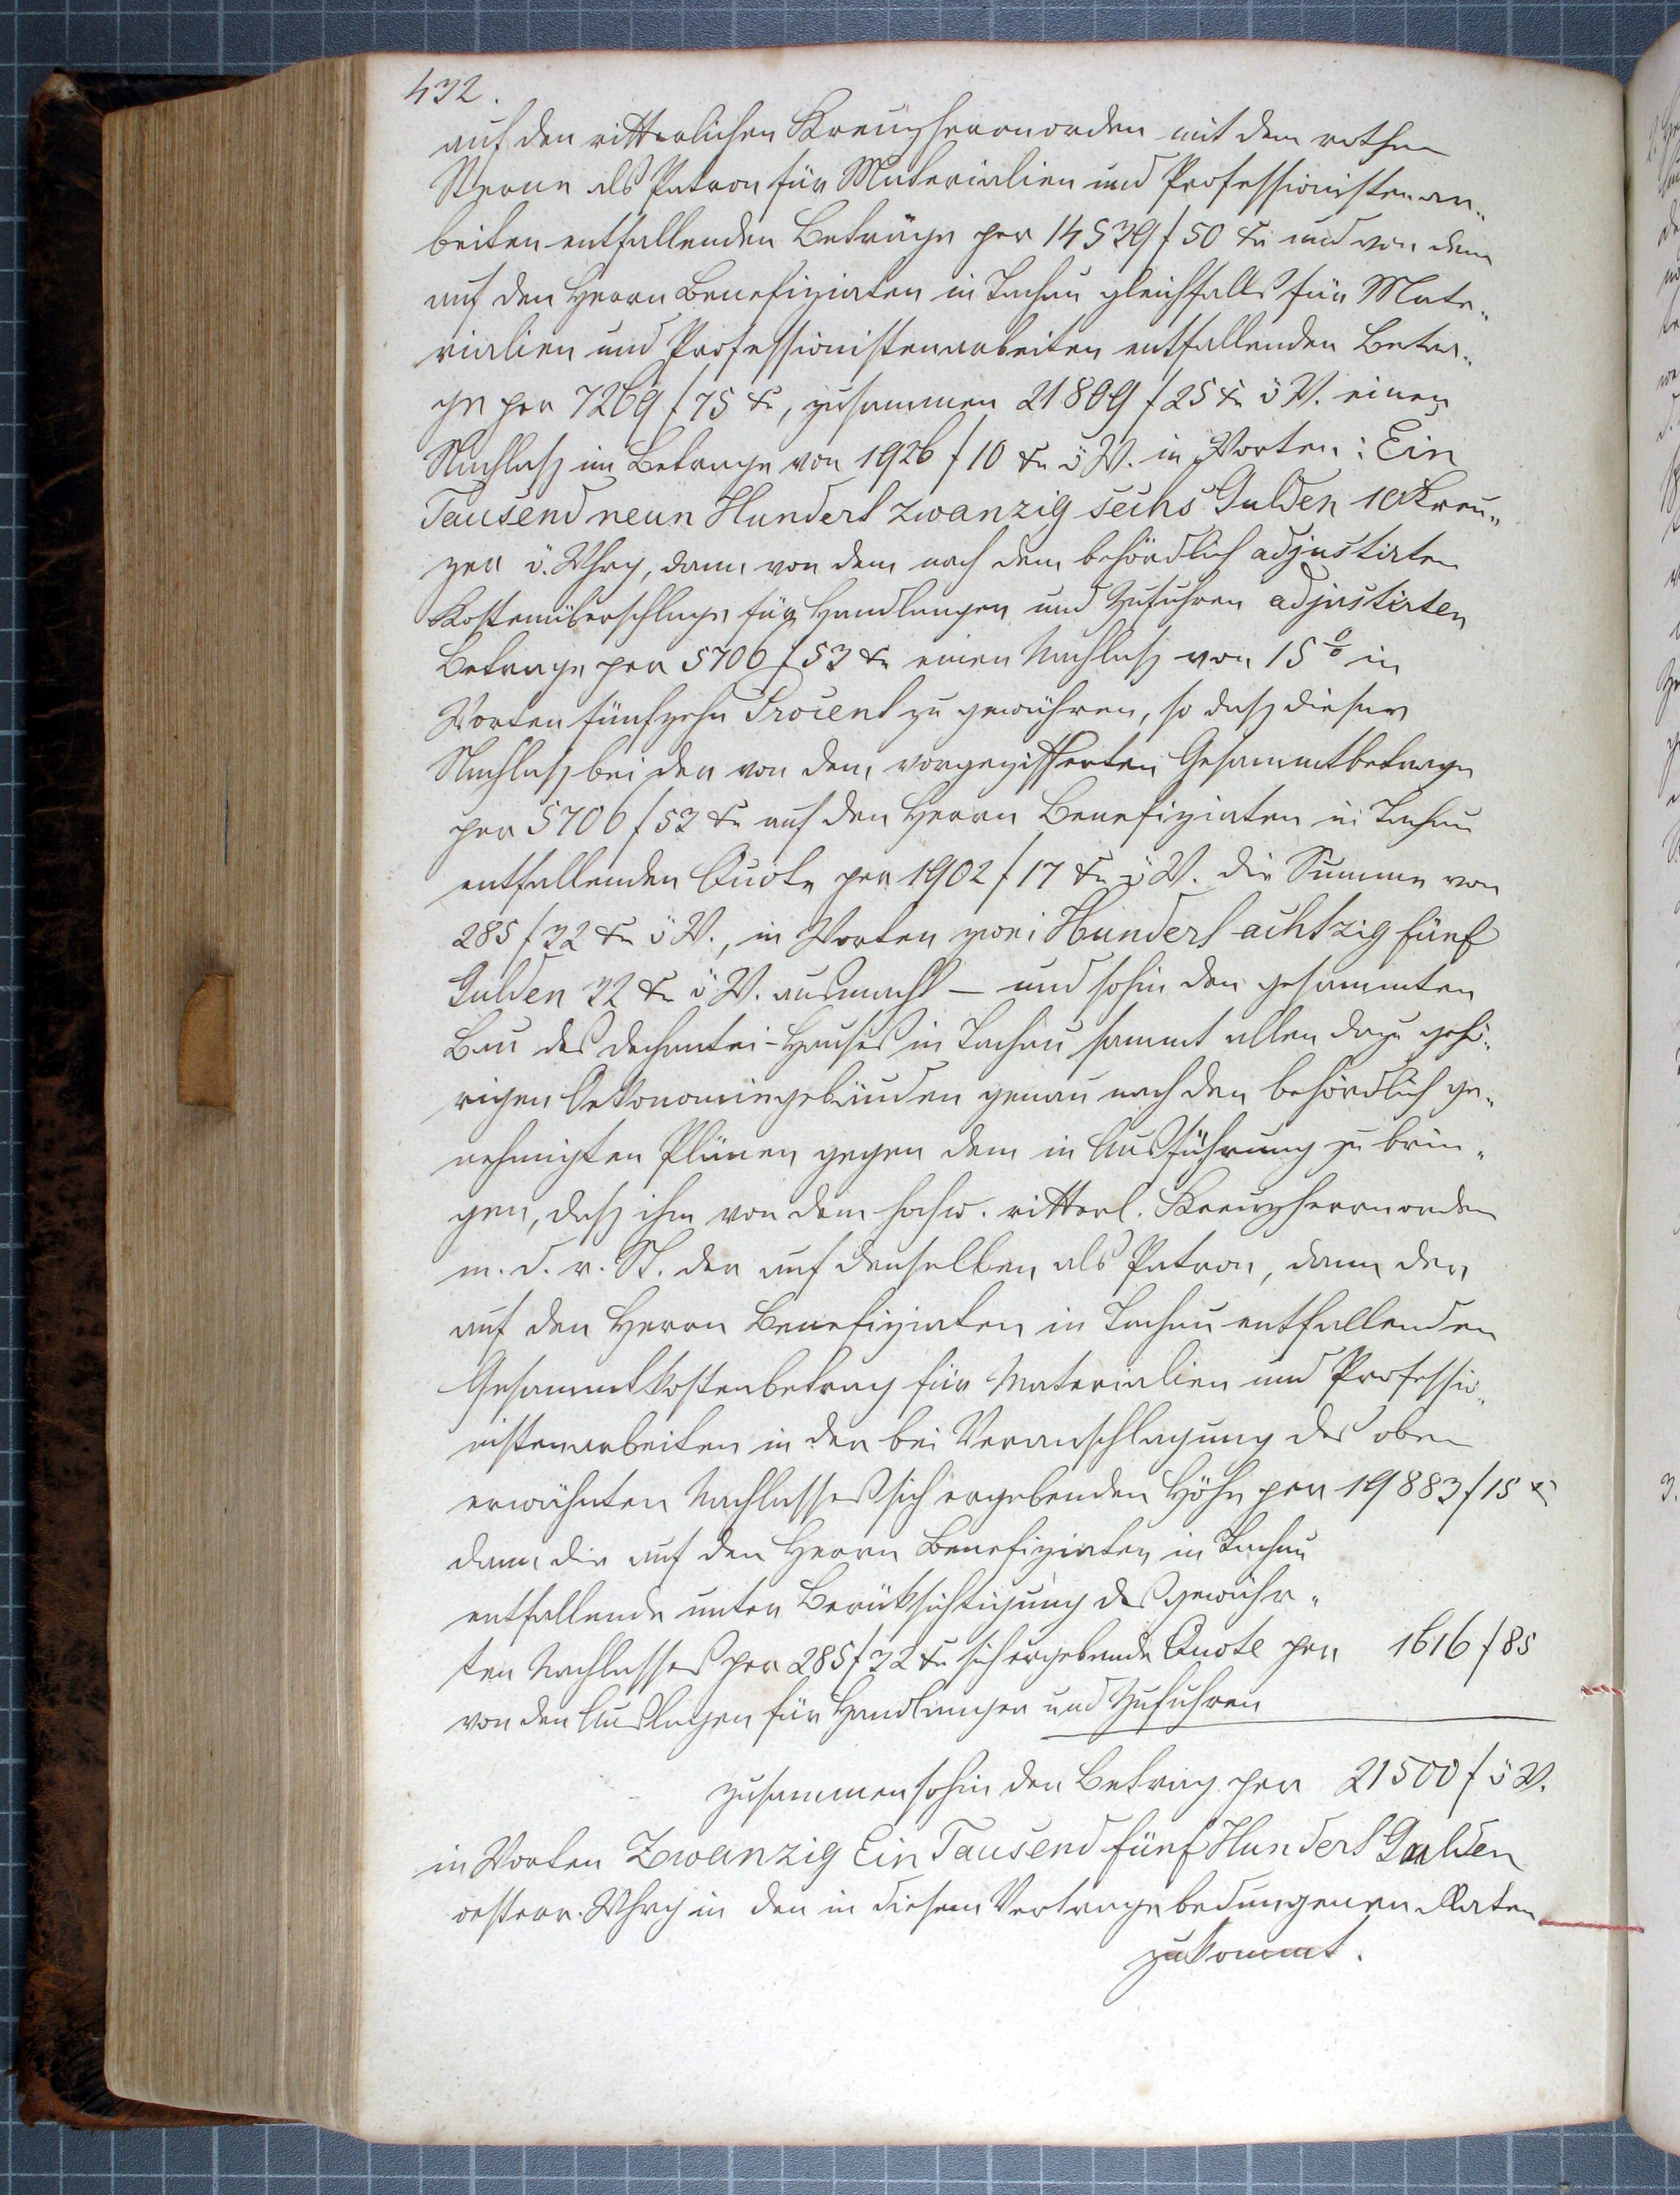 432.
auf den ritterlichen Kreuzherrnorden mit dem rothen
Sterne als Patron für Materialien und Professionistenar„
beiten entfallenden Beträge per 14539 f 50 kr und von dem
auf den Herrn Benefiziaten in Tachau gleichfalls für Mate„
rialien und Professionistenarbeiten entfallenden Betra„
ge per 7269 f 75 kr, zusammen 21809 f 25 kr ö W. einen
Nachlaß im Betrage von 1926 f 10 kr ö W. in Worten: Ein
Tausend neun Hundert zwanzig sechs Gulden 10 Kreu„
zer ö. Whrg, dann von dem nach dem behördlich adjustirten
Kostenüberschlage für Handlanger und Zufuhren adjustirten
Betrage per 5706 f 53 kr einen Nachlaß von 15 % in
Worten fünfzehn Procent zu gewähren, so daß dieser
Nachlaß bei der von dem vorgezifferten Gesammtbetrage
per 5706 f 53 kr auf den Herrn Benefiziaten in Tachau
entfallenden Quote per 1902 f 17 kr ö W. die Summe von
285 f 32 kr ö W., in Worten zwei Hundert achtzig fünf
Gulden 32 kr ö W. ausmacht – und sohin den gesammten
Bau des Dechantei-Hauses in Tachau sammt allen dazu gehö„
rigen Oekonomiegebäuden genau nach den behördlich ge„
nehmigten Plänen gegen dem in Ausführung zu brin„
gen, daß ihm von dem hochw. ritterl. Kreuzherrnorden
m. d. r. St. der auf denselben als Patron, dann der
auf den Herrn Benefiziaten in Tachau entfallenden
Gesammtkostenbetrag für Materialien und Professio„
nistenarbeiten in der bei Veranschlagung des oben
erwähnten Nachlasses sich ergebenden Höhe per 19883 f 15 kr
dann die auf den Herrn Benefiziaten in Tachau
entfallende unter Berücksichtigung des gewähr„
ten Nachlasses per 285 f 32 kr sich ergebende Quote per 1616 f 85
von den Auslagen für Handlanger und Zufuhren
zusammen sohin den Betrag per 21500 f ö W.
in Worten Zwanzig Ein Tausend fünf Hundert Gulden
oesterr. Whrg in den in diesem Vertrage bedungenen Raten
zukommt.